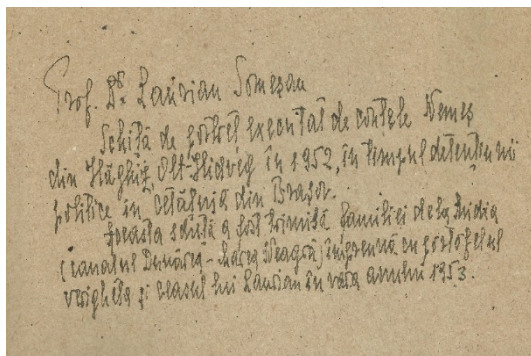 Prof. Dr. Laurian Someșan
Schiță de portret executat de contele Nemeș
din Hăghig, Olt-Hidvég în 1952, în timpul detențiunii
politice în cetățuia din Brașov.
Această schiță a fost trimisă familiei de la Midia
(canalul Dunărea - Marea Neagră) împreună cu portofelul
verigheta și ceasul lui Laurian în vara anului 1953.